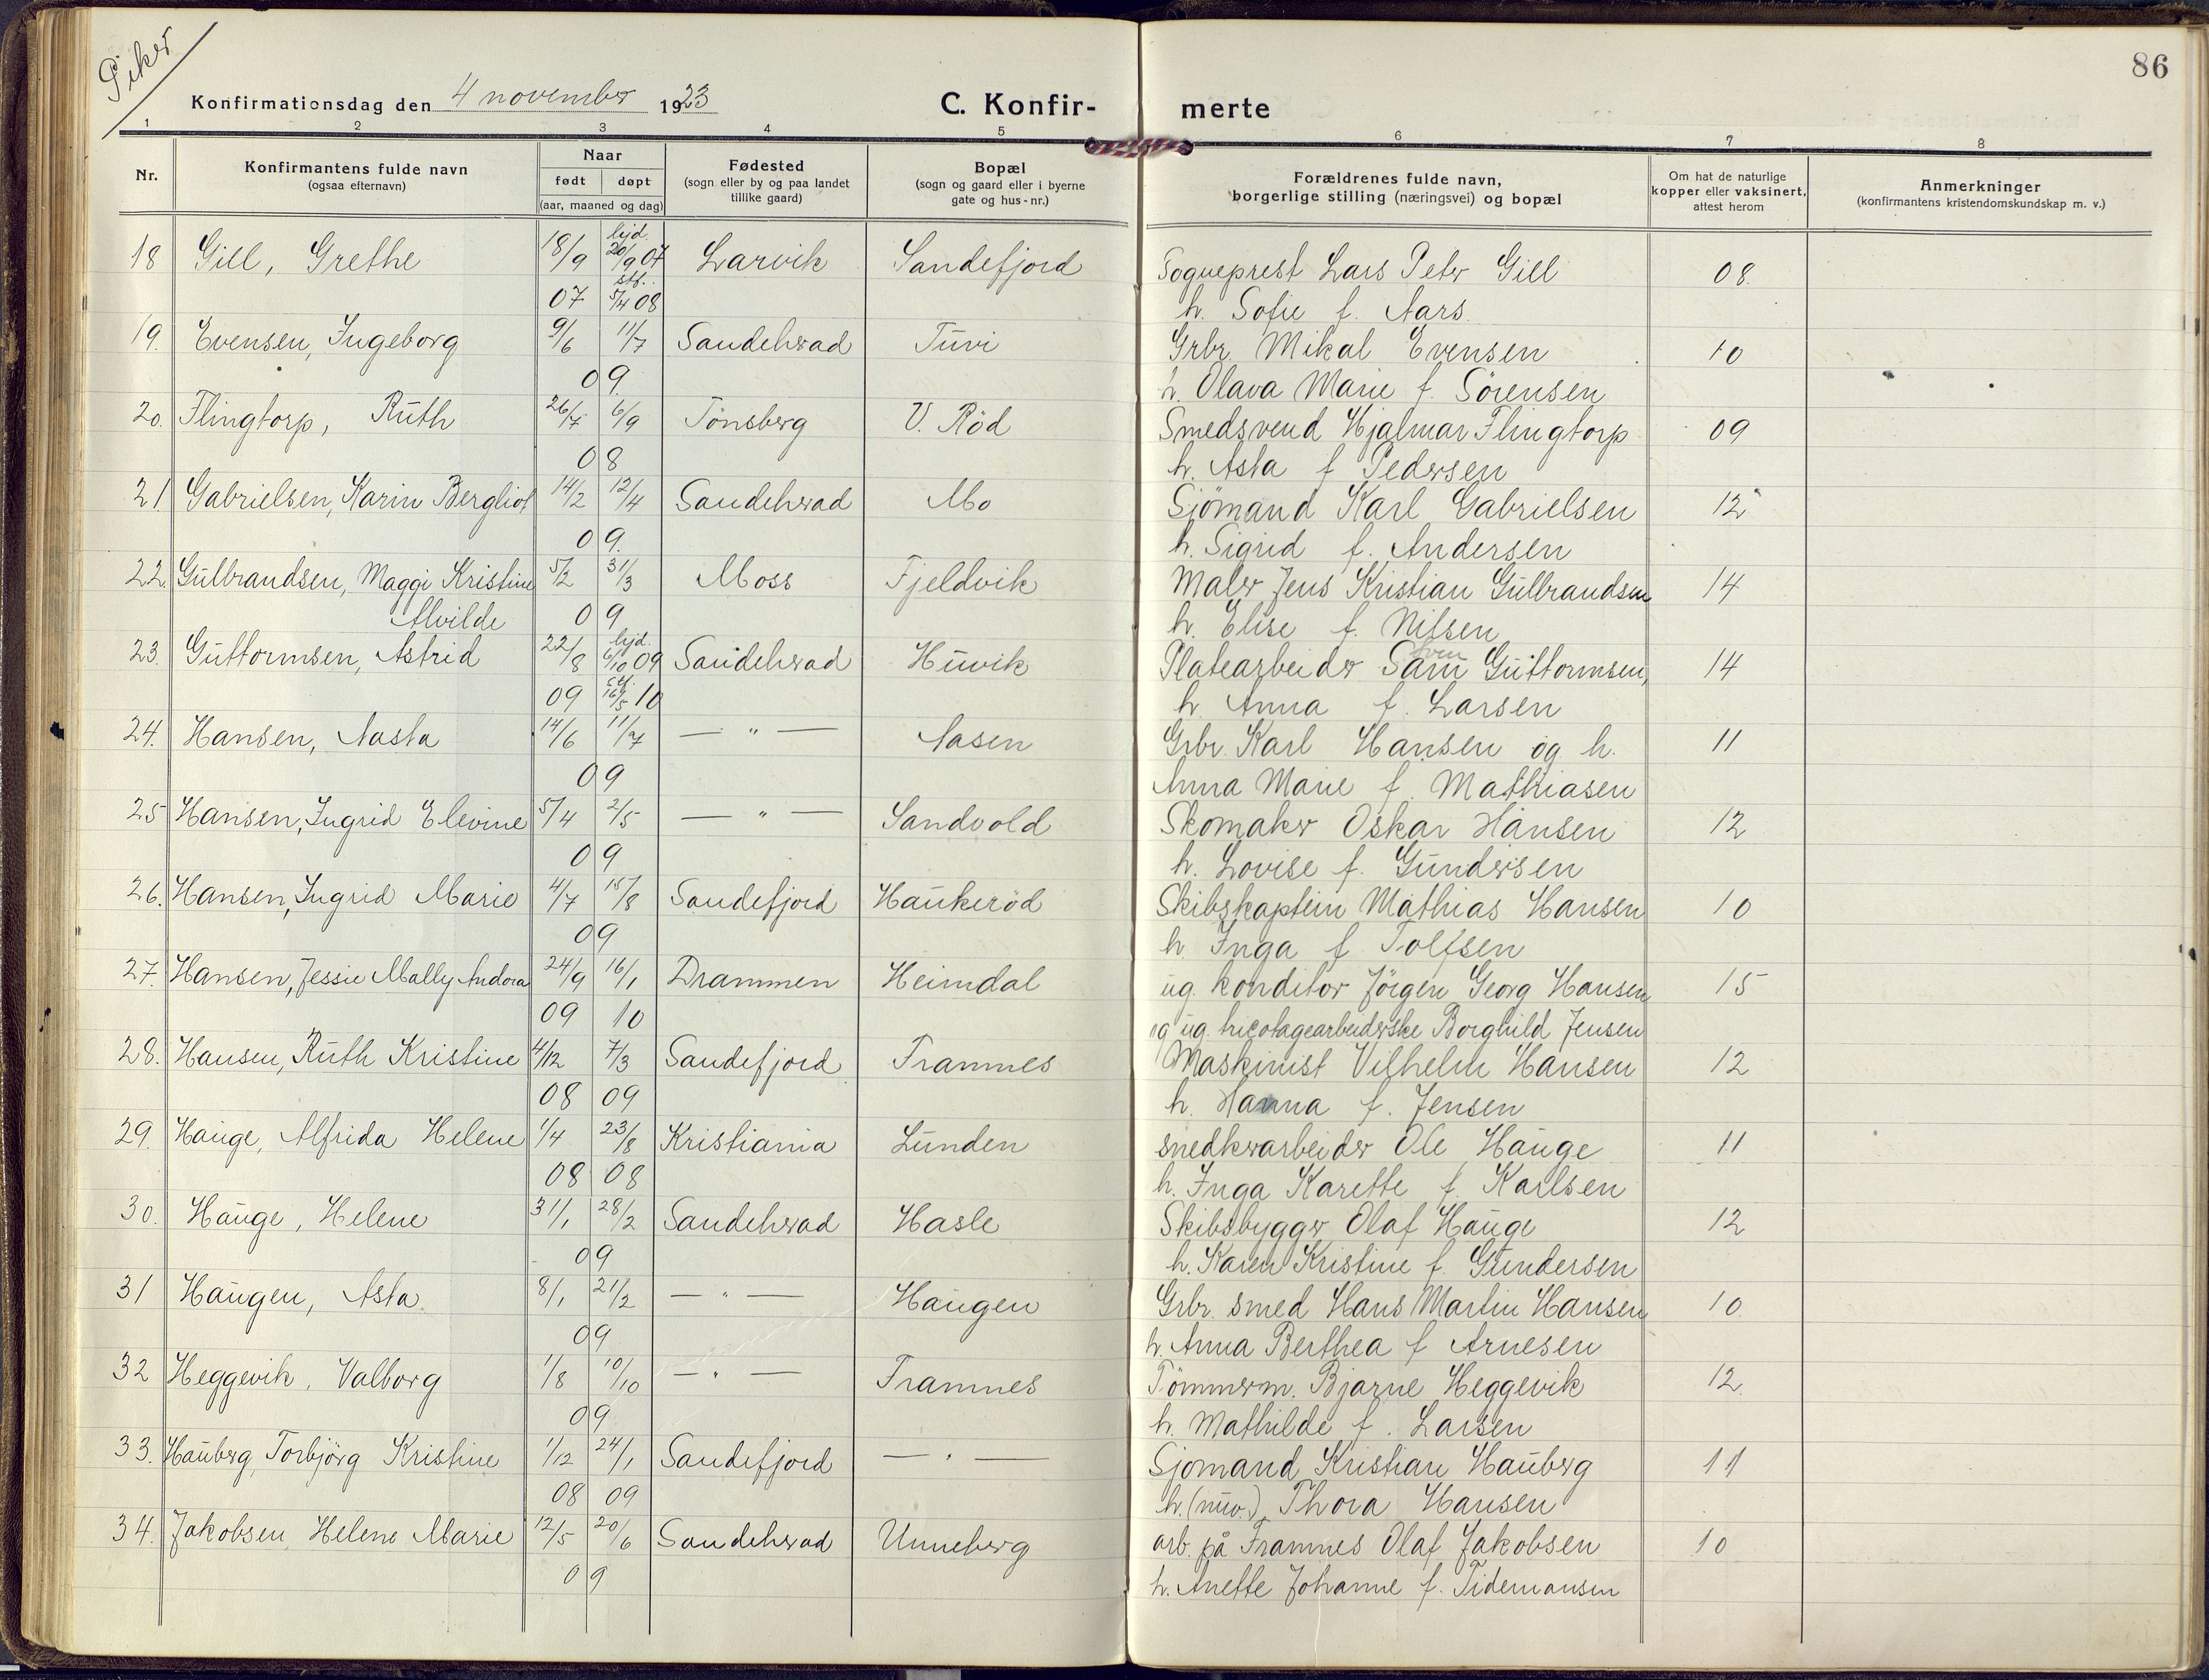 Piker
86
Konfirmationsdag den 4 november 1923
C. Konfir- merte
1 2 3 4 5 6 7 8
Nr.
Konfirmantens fulde navn
(ogsaa efternavn)
Naar
født døpt
(aar, maaned og dag)
Fødested
(sogn eller by og paa landet
tillike gaard)
Bopæl
(sogn og gaard eller i byerne
gate og hus-nr.)
Forældrenes fulde navn,
borgerlige stilling (næringsvei) og bopæl
Om hat de naturlige
kopper eller vaksinert,
attest herom
Anmerkninger
(konfirmantens kristendomskundskap m. v.)
18 Gill, Grethe 18/9 hjd. 20/9 07 Larvik Sandefjord Sogneprest Lars Peter Gill 08.
07 stf. 5/4 08 h. Sofie f. Aars.
19. Evensen, Ingeborg 9/6 11/7 Sandehrad Tuvi Grbr. Mikal Evensen 10
09. h. Olava Marie f. Sörensen
20. Flingtorp, Ruth 26/7 6/9 Tönsberg V. Röd Smedsvend Hjalmar Flingtorp 09
08 h. Asta f Pedersen
21 Gabrielsen, Karin Bergliot 14/2 12/4 Sandeherad Mo Sjömand Karl Gabrielsen 12
09. h. Sigrid f. Andersen
22. Gulbrandsen, Maggi Kristine 5/2 31/3 Moss Fjeldvik Maler Jens Kristian Gulbrandsen 14
Alvilde 09 h. Elise f. Nilsen
23. Guttormsen, Astrid 22/8 hjd. 6/10 09 Sandeherad Huvik Platearbeider Sam Guttormsen, 14
09 stf. 16/5 10 h. Anna f. Larsen
24. Hansen, Aasta 14/6 11/7 — " — Aasen Grbr. Karl Hansen og h. 11
09 Anna Marie f. Mathiasen
25 Hansen, Ingrid Elevine 5/4 2/5 — " — Sandvold Skomaker Oskar Hansen 12
09 h. Lovise f. Gundersen
26. Hansen, Ingrid Marie 4/7 15/8 Sandefjord Haukeröd Skibskaptein Mathias Hansen 10
09 h. Inga f Tolfsen
27. Hansen, Jessie Mally Andora 24/9 16/1 Drammen Heimdal ug. konditor Jörgen Georg Hansen 15
09 10 og ug. tricotagearbeiderske Borghild Jensen
28. Hansen, Ruth Kristine 4/12 7/3 Sandefjord Framnes Maskinist Vilhelm Hansen 12
08 09 h. Hanna f. Jensen
29. Hauge, Alfrida Helene 1/4 23/8 Kristiania Lunden snedkerarbeider Ole Hauge 11
08 08 h. Inga Karette f. Karlsen
30. Hauge, Helene 31/1 28/2 Sandeherad Hasle Skibsbygger Olaf Hauge 12
09 h. Karen Kristine f. Gundersen
31 Haugen, Asta. 8/1 21/2 — " — Haugen Grbr. smed Hans Martin Hansen 10.
09 h. Anna Berthea f Arnesen
32 Heggevik, Valborg 1/8 10/10 — " — Framnes Tömmerm. Bjarne Heggevik 12.
09 h. Mathilde f. Larsen
33. Hauberg, Torbjörg Kristine 1/12 24/1 Sandefjord — " — Sjomand Kristian Hauberg 11
08 09 h. (nuv.) Thora Hansen
34. Jakobsen, Helene Marie 12/5 20/6 Sandeherad Unneberg arb. på Framnes Olaf Jakobsen 10
09 h. Anette Johanne f. Tidemansen